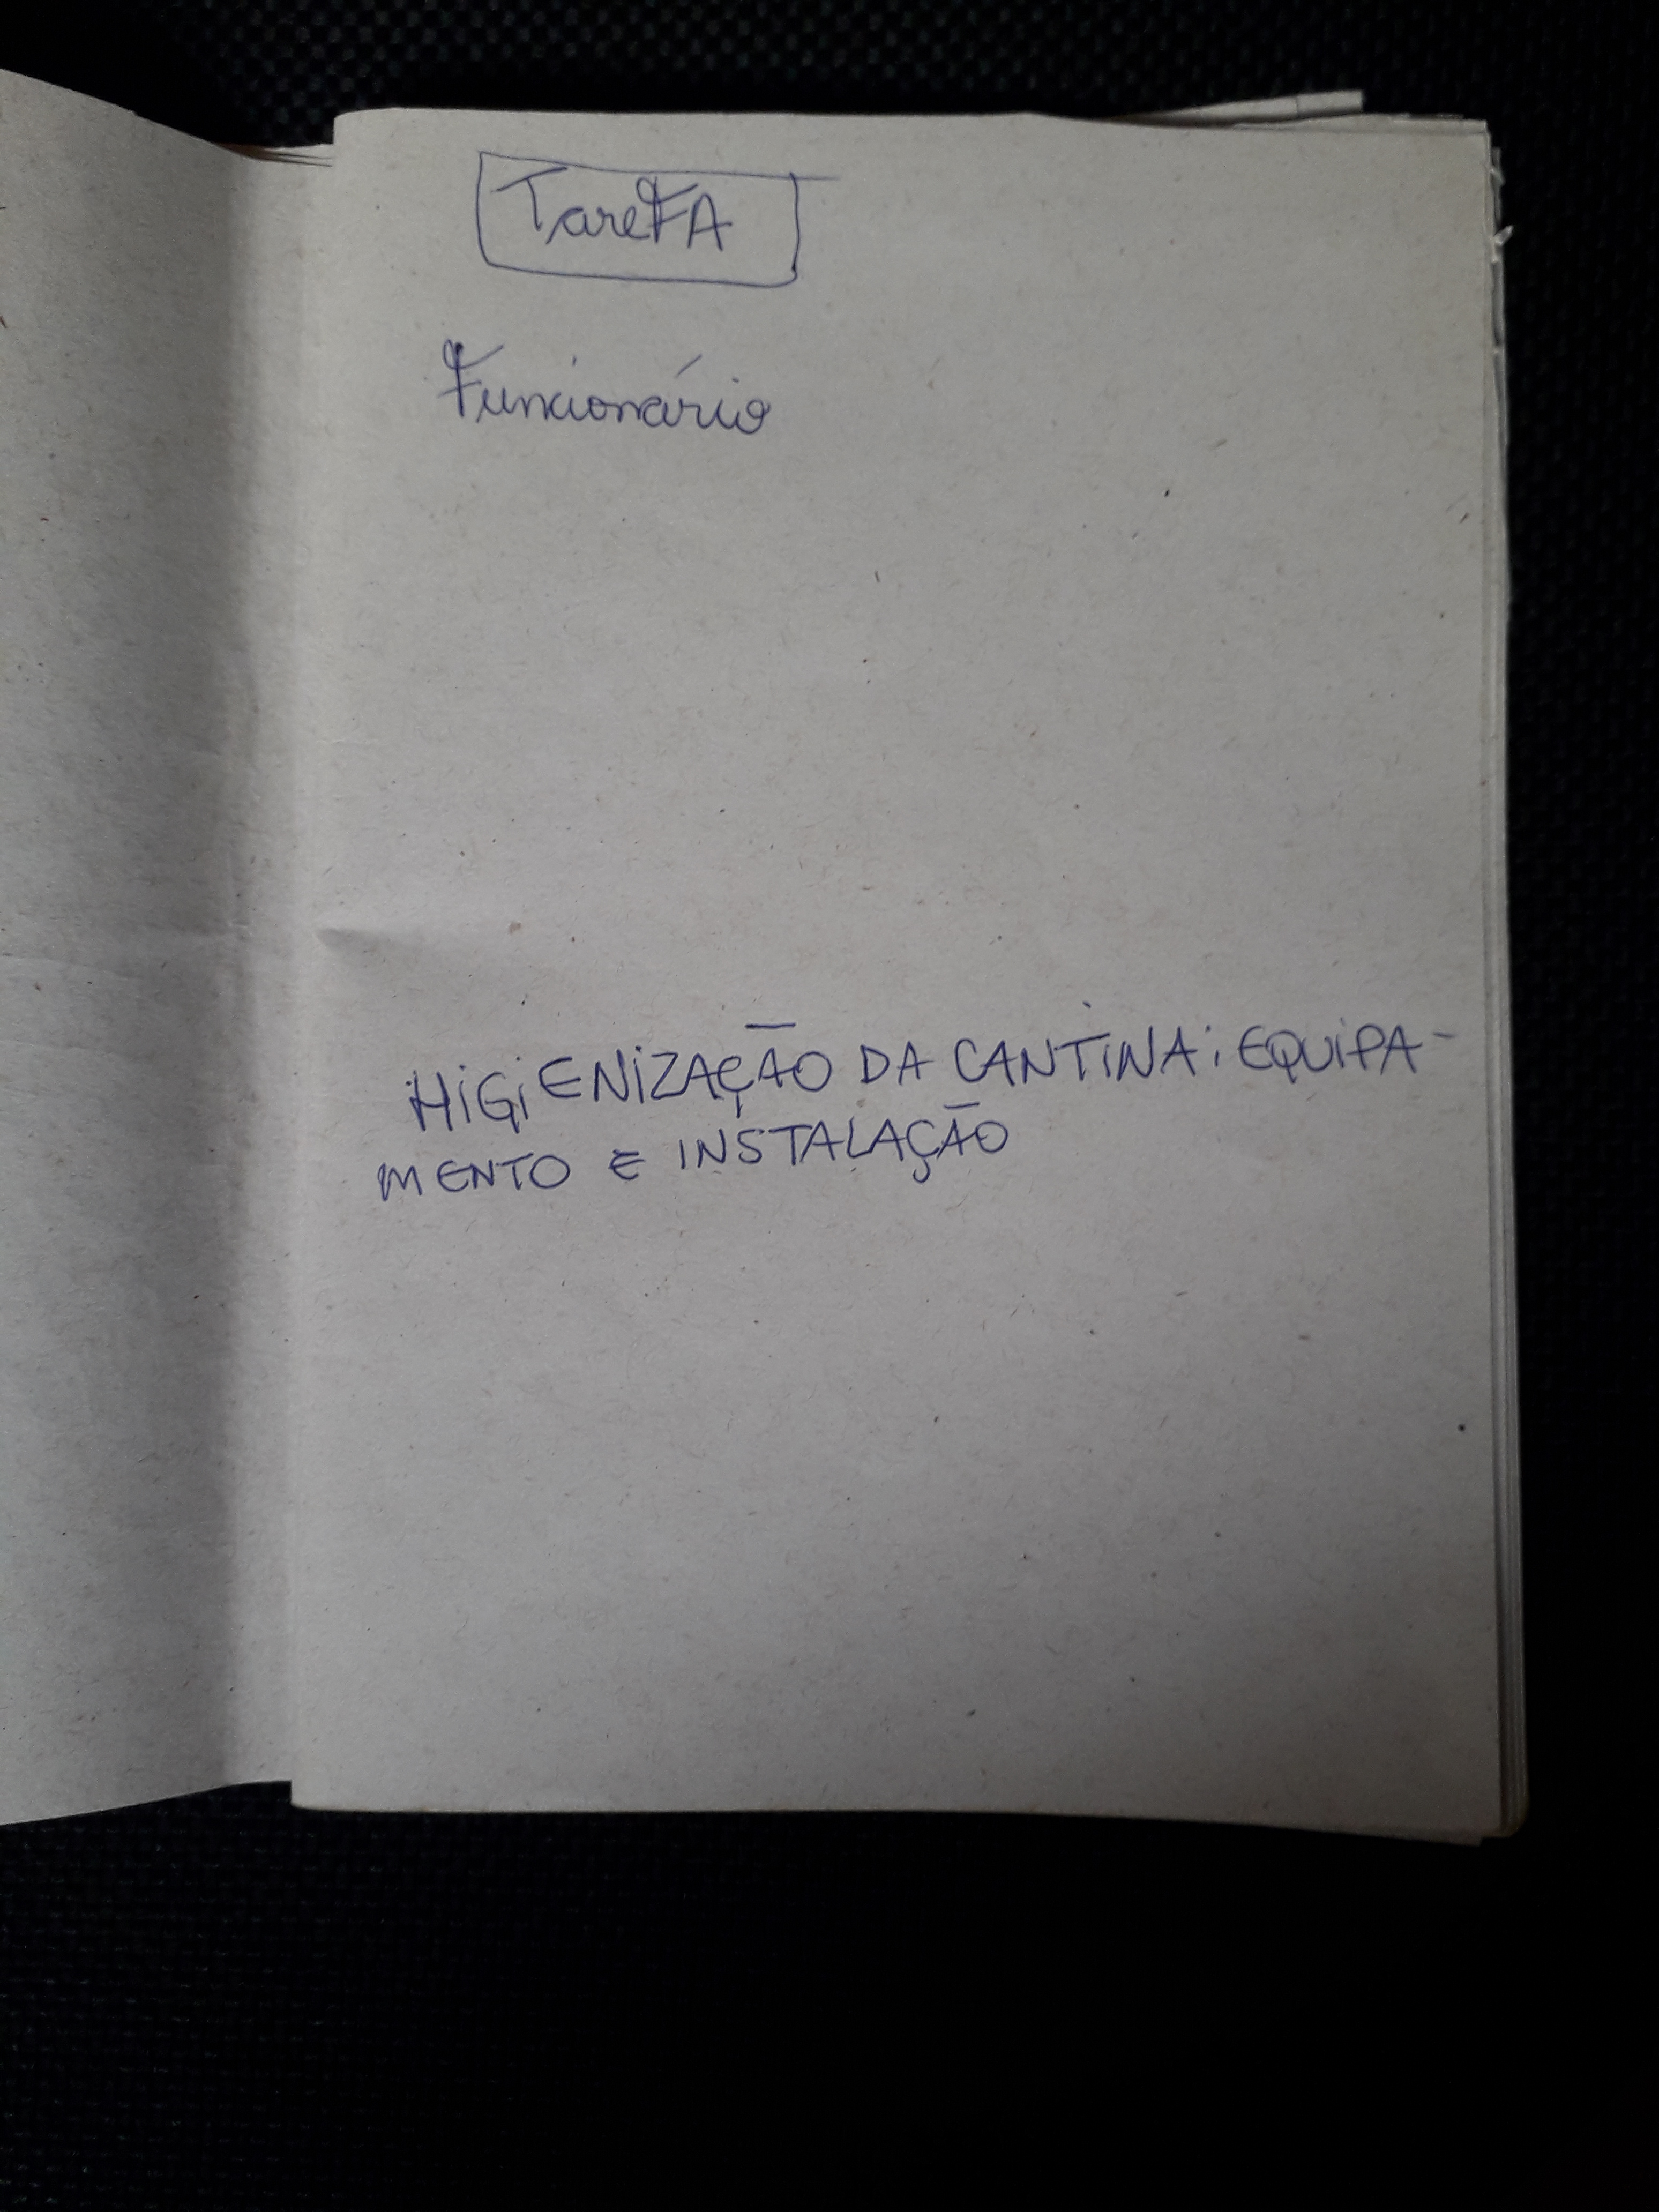 TareFA
Funcionário
HIGIENIZAÇÃO DA CANTINA: EQUIPA-
MENTO E INSTALAÇÃO